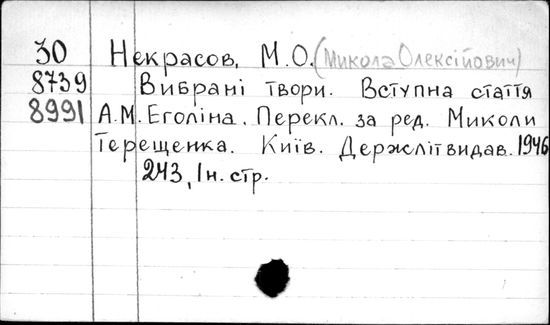 30 Некрасов, М.О. (Микола Олексійович)
8739 Вибрані твори. Вступна стаття
8991 А.М. Еголіна. Перекл. за ред. Миколи
Терещенка. Київ. Держлітвидав. 1946
243, 1 н. стр.